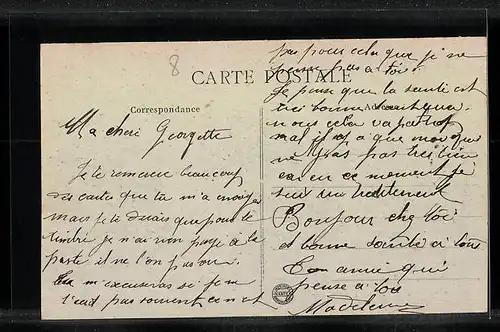 8
CARTE POSTALE
Correspondance
Ma cheri Georgette
Je te remercie beaucoup
des cartes que tu m'a envoyer
mais je te dirais que pour le
timbre je n'ai rien payé à la
poste il ne l'on pas vu
tu m'excusras si je ne
t'ecrit pas souvent ce n'est
pas pour cela que je ne
pense pas a toi
Je pense que la santé est
tres bonne
nous cela va pas trop
mal il y a que moi qui
ne vas pas tres bien
car en ce moment je
suit un traitement
Bonjour chez toi
et bonne santé a tous
Ton amie qui
pense a toi
Madeleine